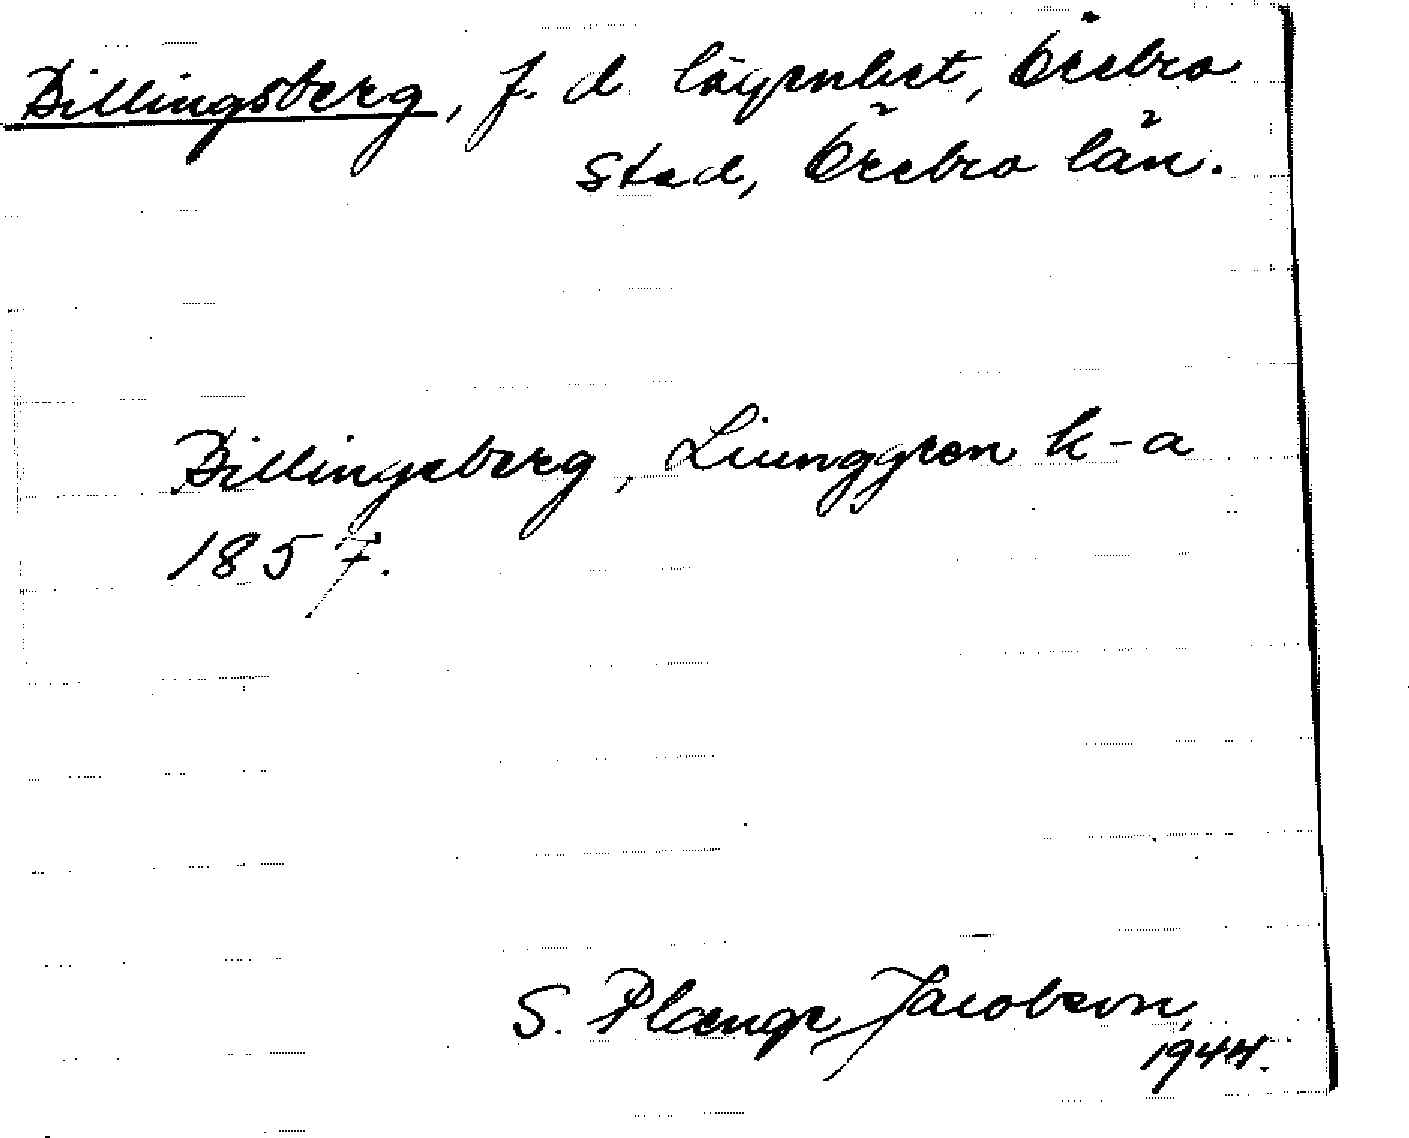 Billingsberg, f. d lägenhet, Örebro
stad, Örebro län.
Billingeberg, Liunggren k-a
1857.
S. Plænge Jacobson,
1944.